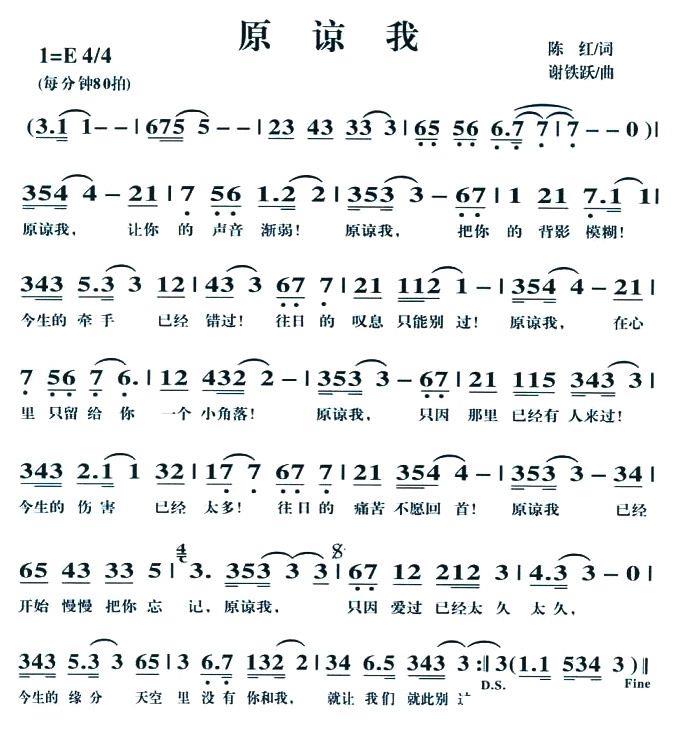 原谅我
1=E 4/4
陈 红/词
(每分钟80拍)
谢铁跃/曲
(3.1 1--|675 5--|23 43 33 3|65 56 6.7 7|7--0)|
354 4-21|7 56 1.2 2|353 3-67|1 21 7.1 1|
原谅我, 让你 的 声音 渐弱! 原谅我, 把你 的 背影 模糊!
343 5.3 3 12|43 3 67 7|21 112 1-|354 4-21|
今生的 牵手 已经 错过! 往日 的 叹息 只能别 过! 原谅我, 在心
7 56 7 6.|12 432 2-|353 3-67|21 115 343 3|
里 只留 给 你 一个 小角落! 原谅我, 只因 那里 已经有 人来过!
343 2.1 1 32|17 7 67 7|21 354 4-|353 3-34|
今生的 伤害 已经 太多! 往日 的 痛苦 不愿回 首! 原谅我 已经
65 43 33 5|3. 353 3 3|67 12 212 3|4.3 3-0|
开始 慢慢 把你 忘 记, 原谅我, 只因 爱过 已经太 久 太久,
343 5.3 3 65|3 6.7 132 2|34 6.5 343 3:||3(1.1 534 3)||
今生的 缘分 天空 里 没有 你和我, 就让 我们 就此别
D.S.
Fine